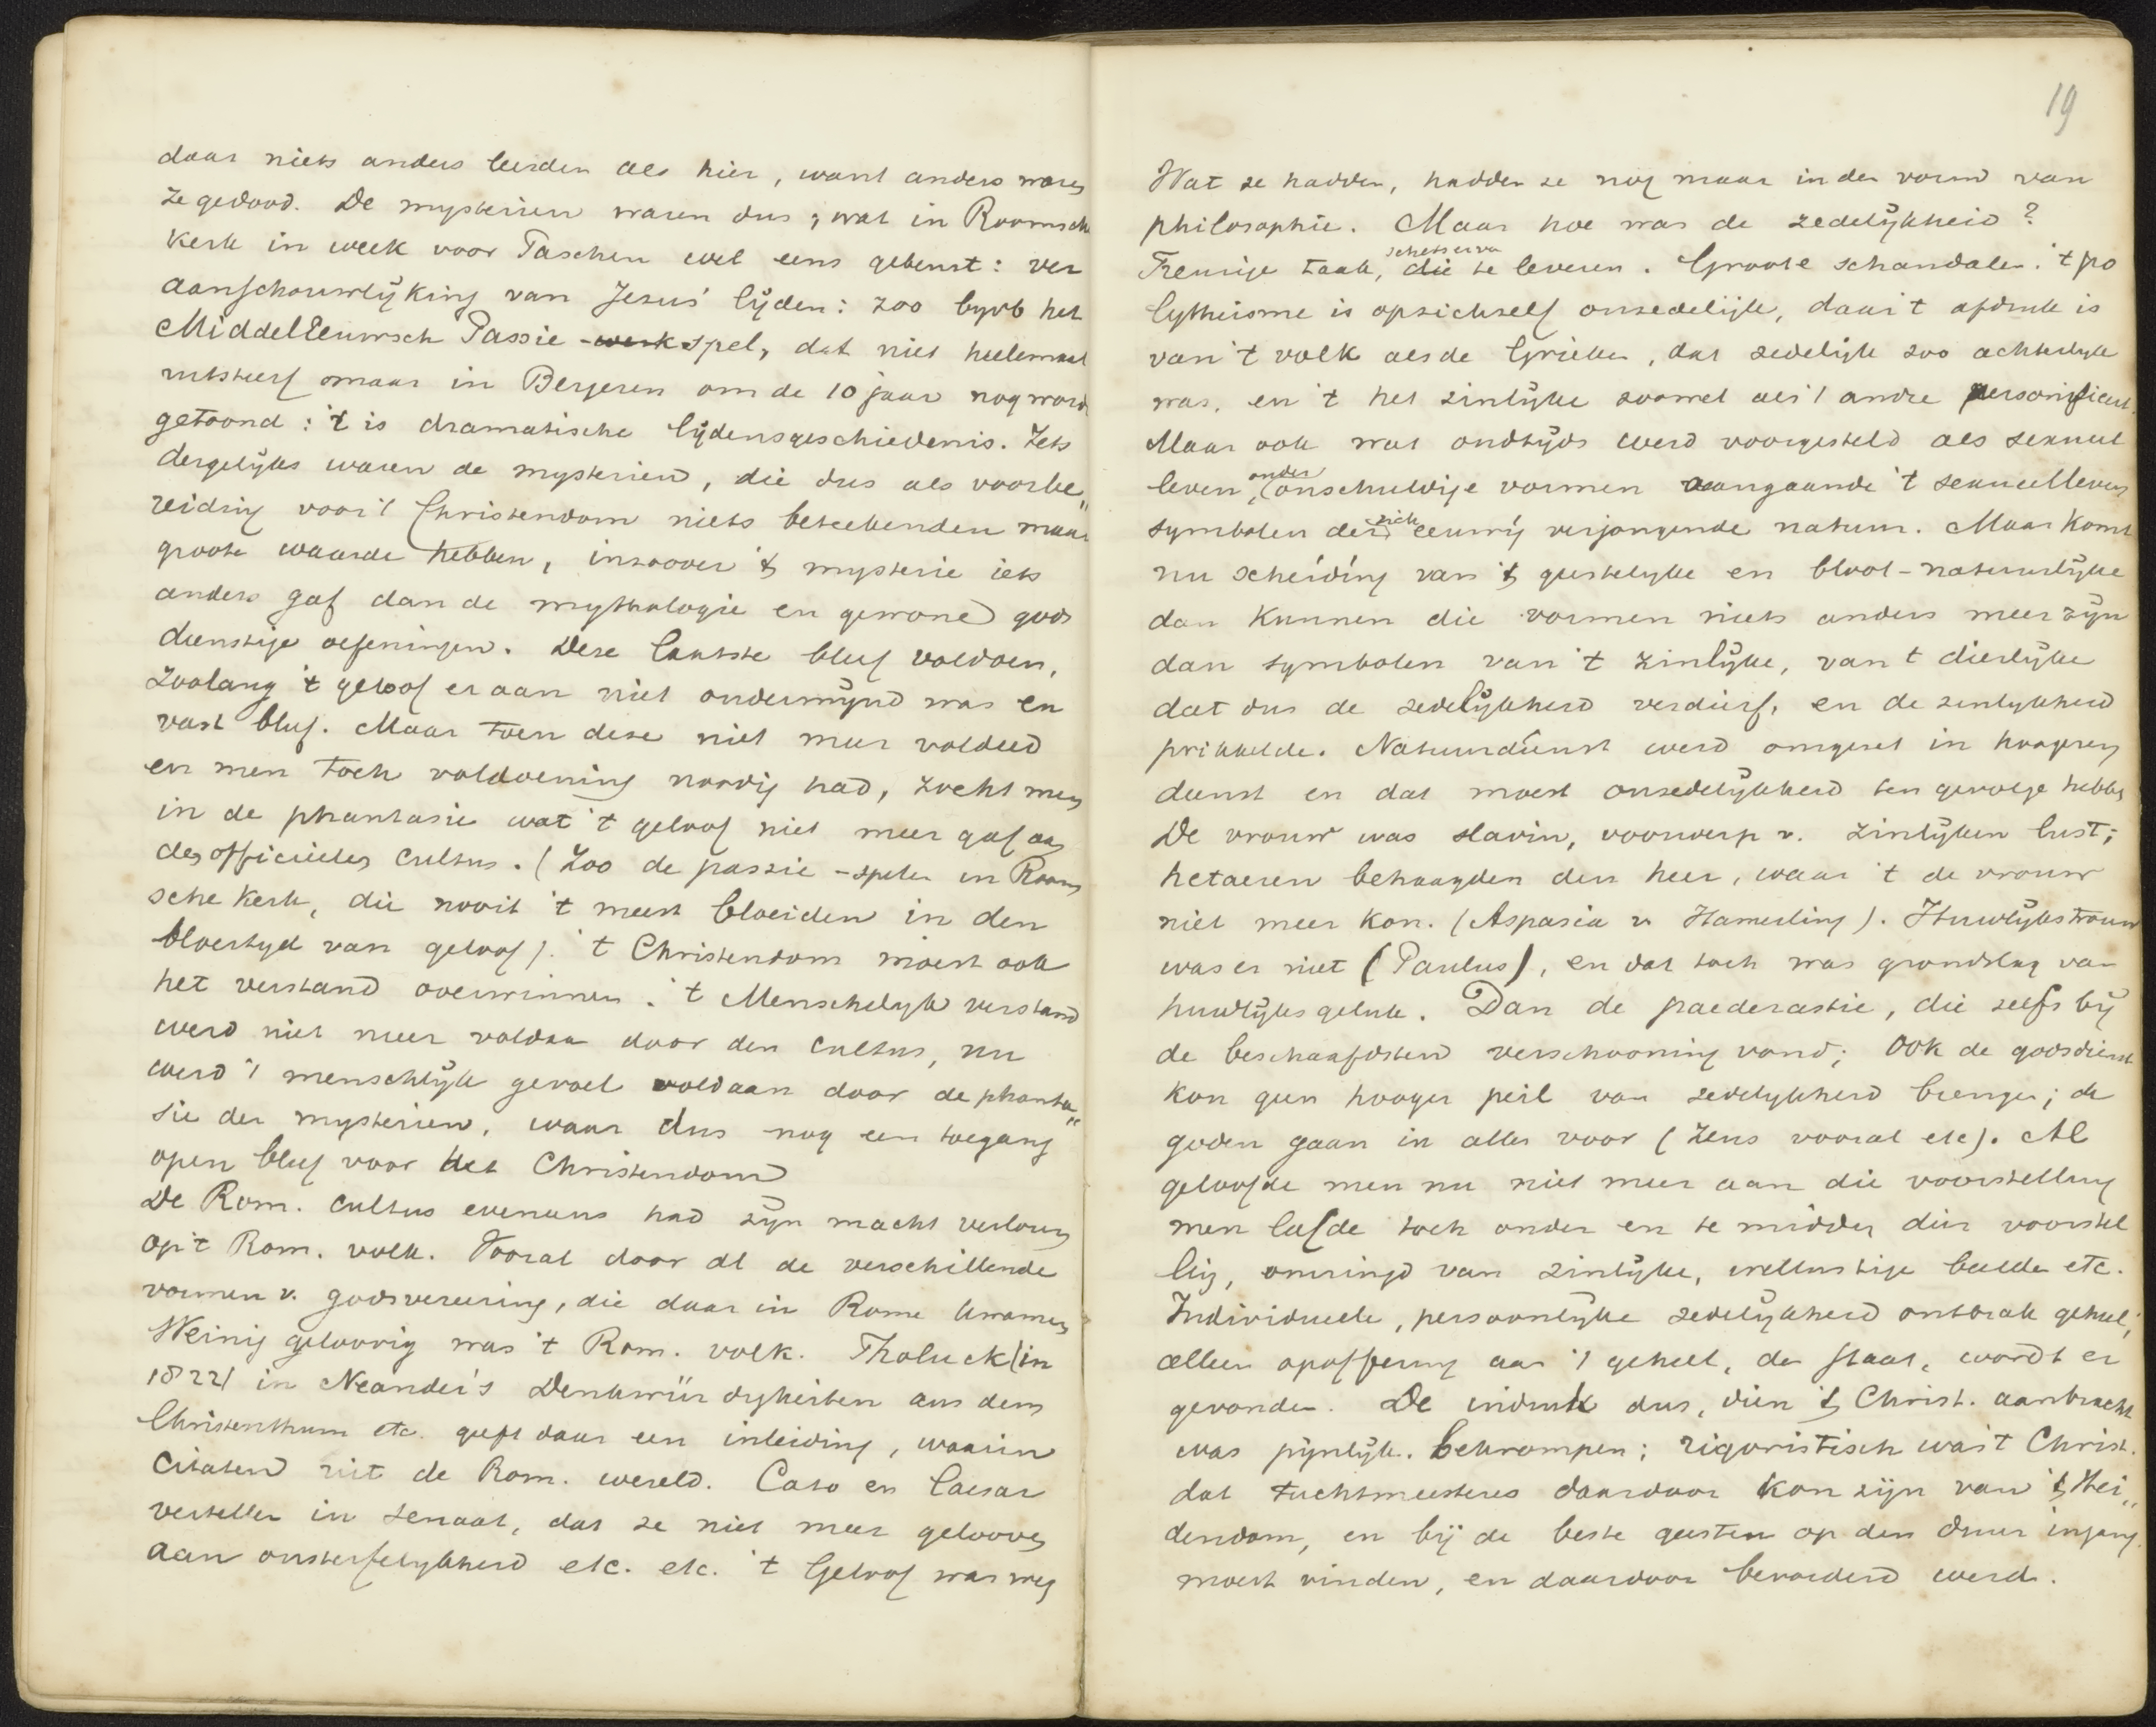 daar niets anders leerden als hier, want anders waren
ze gedood. De mysterien waren dus, wat in Roomsch
Kerk in week voor Paschen wel eens gebeurt: ver
aanschouwlijking van Jesus' lijden: zoo byvb het
MiddelEeuwsch Passie-werkspel, dat niet heelemaal
uitstierf maar in Beyeren om de 10 jaar nog word
getoond: 't is dramatische lijdensgeschiedenis. Iets
dergelijks waren de mysterien, die dus als voorbe"
reiding voor 't Christendom niets beteekenden maar
groote waarde hebben, inzoover 't mysterie iets
anders gaf dan de mythologie en gewone gods
dienstige oefeningen. Deze laatste bleef voldoen,
Zoolang 't geloof er aan niet ondermijnd was en
vast bleef. Maar toen deze niet meer voldeed
en men toch voldoening noodig had, zocht men
in de phantasie wat 't geloof niet meer gaf aan
den officieelen cultus. (Zoo de passie-spelen in Room
sche Kerk, die nooit 't meest bloeiden in den
bloeityd van geloof). 't Christendom moest ook
het verstand overwinnen. 't Menschelyk verstand
werd niet meer voldaan door den cultus, nu
werd 't menschlijk gevoel voldaan door de phanta"
sie der mysterien, waar dus nog een toegang
open bleef voor het Christendom
De Rom. cultus eveneens had zijn macht verloren
op 't Rom. volk. Vooral door al de verschillende
vormen v. godsvereering, die daar in Rome kwamen
Weinig geloovig was 't Rom. volk. Tholuck (in
1822) in Neander's Denkwürdigkeiten aus dem
Christenthum etc. geeft daar een inleiding, waarin
Citaten uit de Rom. wereld. Cato en Caesar
vertellen in senaat, dat ze niet meer gelooven
aan onsterfelykheid etc. etc. 't Geloof was weg
19
Wat ze hadden, hadden ze nog maar in den vorm van
philosophie. Maar hoe was de zedelijkheid?
schets erva
Treurige taak, die te leveren. Groote schandalen. 't po
lytheisme is opzichzelf onzedelijk, daar 't afdruk is
van 't volk als de Grieken, dat zedelijk zoo achterlyk
was, en 't het zinlijke zoowel als 't andre personificeert.
Maar ook wat oudtijds werd voorgesteld als sexueel
leven, onder onschuldige vormen aangaande 't sexueelleven
symbolen der zich eeuwig verjongende natuur. Maar komt
nu scheiding van 't geestelyke en bloot-natuurlijke
dan kunnen die vormen niets anders meer zijn
dan symbolen van 't zinlijke, van 't dierlijke
dat dus de zedelijkheid verdierf, en de zinlykheid
prikkelde. Natuurdienst werd omgezet in hoogeren
dienst en dat moest onzedelijkheid ten gevolge hebben
De vrouw was slavin, voorwerp v. zinlijken lust;
hetaeren behaagden den heer, waar 't de vrouw
niet meer kon. (Aspasia v. Hamerling). Huwlijkstrouw
was er niet (Paulus), en dat toch was grondslag van
huwlijksgeluk. Dan de paederastie, die zelfs bij
de beschaafdsten verschooning vond; Ook de godsdienst
kon geen hooger peil van zedelykheid brengen; de
goden gaan in alles voor (Zeus vooral etc). Al
geloofde men nu niet meer aan die voorstelling
men leefde toch onder en te midden dier voorstel
ling, omringd van zinlijke, wellustige beelden etc.
Individueele, persoonlijke zedelijkheid ontbrak geheel;
alleen opoffering aan 't geheel, den staat, wordt er
gevonden. De indruk dus, dien 't Christ. aanbracht
was pijnlijk. bekrompen; rigoristisch was 't Christ.
dat tuchtmeesteres daardoor kon zijn van 't Hei"
dendom, en bij de beste geesten op den duur ingang
moest vinden, en daardoor bevorderd werd.